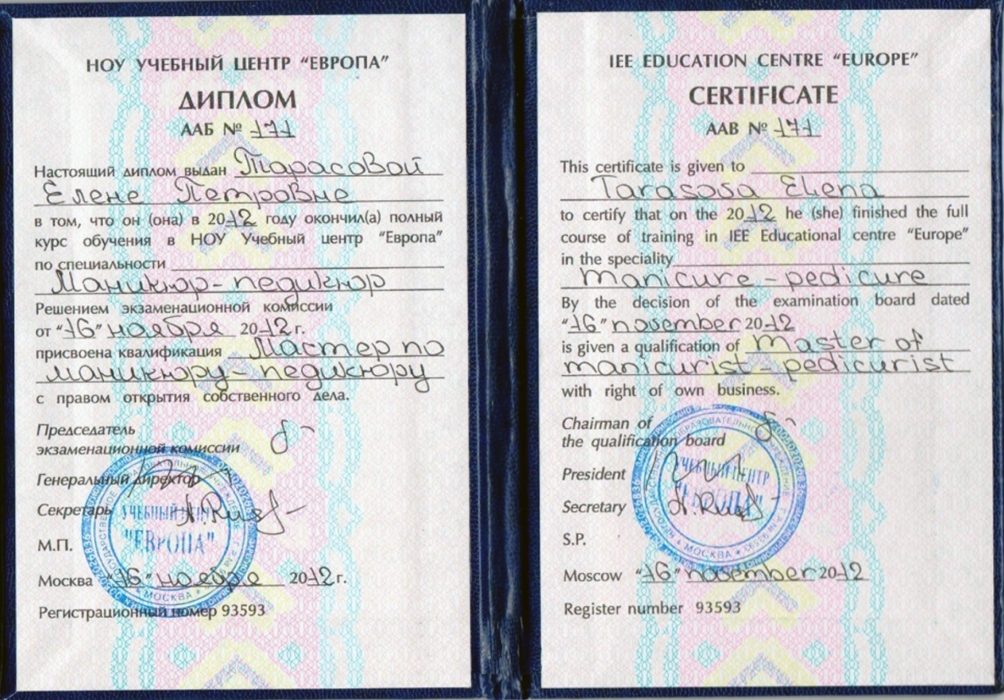 НОУ УЧЕБНЫЙ ЦЕНТР "ЕВРОПА"
ДИПЛОМ
ААБ № 171
Настоящий диплом выдан Тарасовой
Елене Петровне
в том, что он (она) в 2012 году окончил(а) полный
курс обучения в НОУ Учебный центр "Европа"
по специальности
Маникюр-педикюр
Решением экзаменационной комиссии
от "16" ноября 2012г.
присвоена квалификация Мастер по
маникюру-педикюру
с правом открытия собственного дела.
Председатель
экзаменационной комиссии
Генеральный директор
Секретарь
М.П.
УЧЕБНЫЙ ЦЕНТР
"ЕВРОПА"
МОСКВА
Москва "16" ноября 2012г.
Регистрационный номер 93593
IEE EDUCATION CENTRE "EUROPE"
CERTIFICATE
AAB № 171
This certificate is given to
Tarasosa Elena
to certify that on the 2012 he (she) finished the full
course of training in IEE Educational centre "Europe"
in the speciality
manicure-pedicure
By the decision of the examination board dated
"16" november 2012
is given a qualification of Master of
manicurist-pedicurist
with right of own business.
Chairman of
the qualification board
President
Secretary
S.P.
УЧЕБНЫЙ ЦЕНТР
"ЕВРОПА"
МОСКВА
Moscow "16" november 2012
Register number 93593